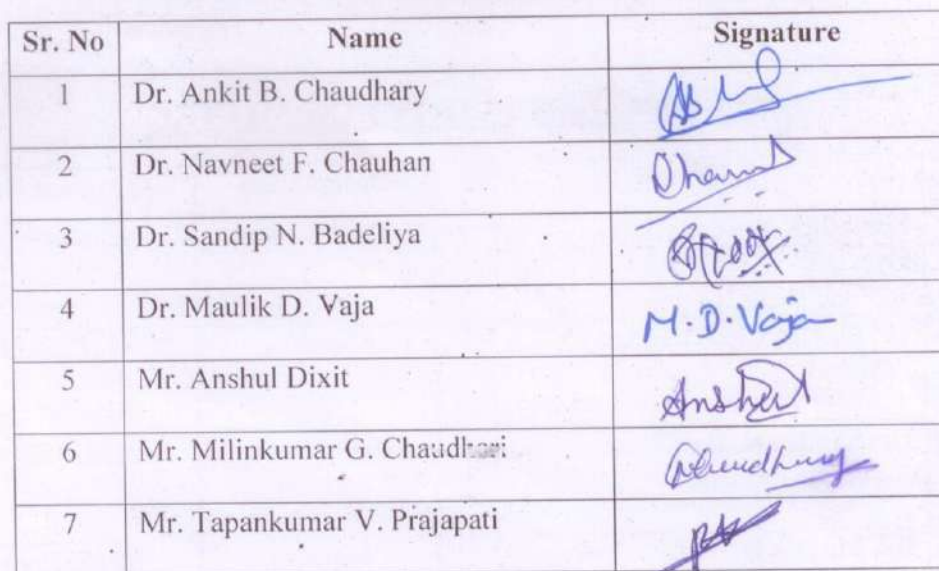 Sr. No Name Signature
1 Dr. Ankit B. Chaudhary
2 Dr. Navneet F. Chauhan
3 Dr. Sandip N. Badeliya
4 Dr. Maulik D. Vaja M.D.Vaja
5 Mr. Anshul Dixit Anshul
6 Mr. Milinkumar G. Chaudhari
7 Mr. Tapankumar V. Prajapati